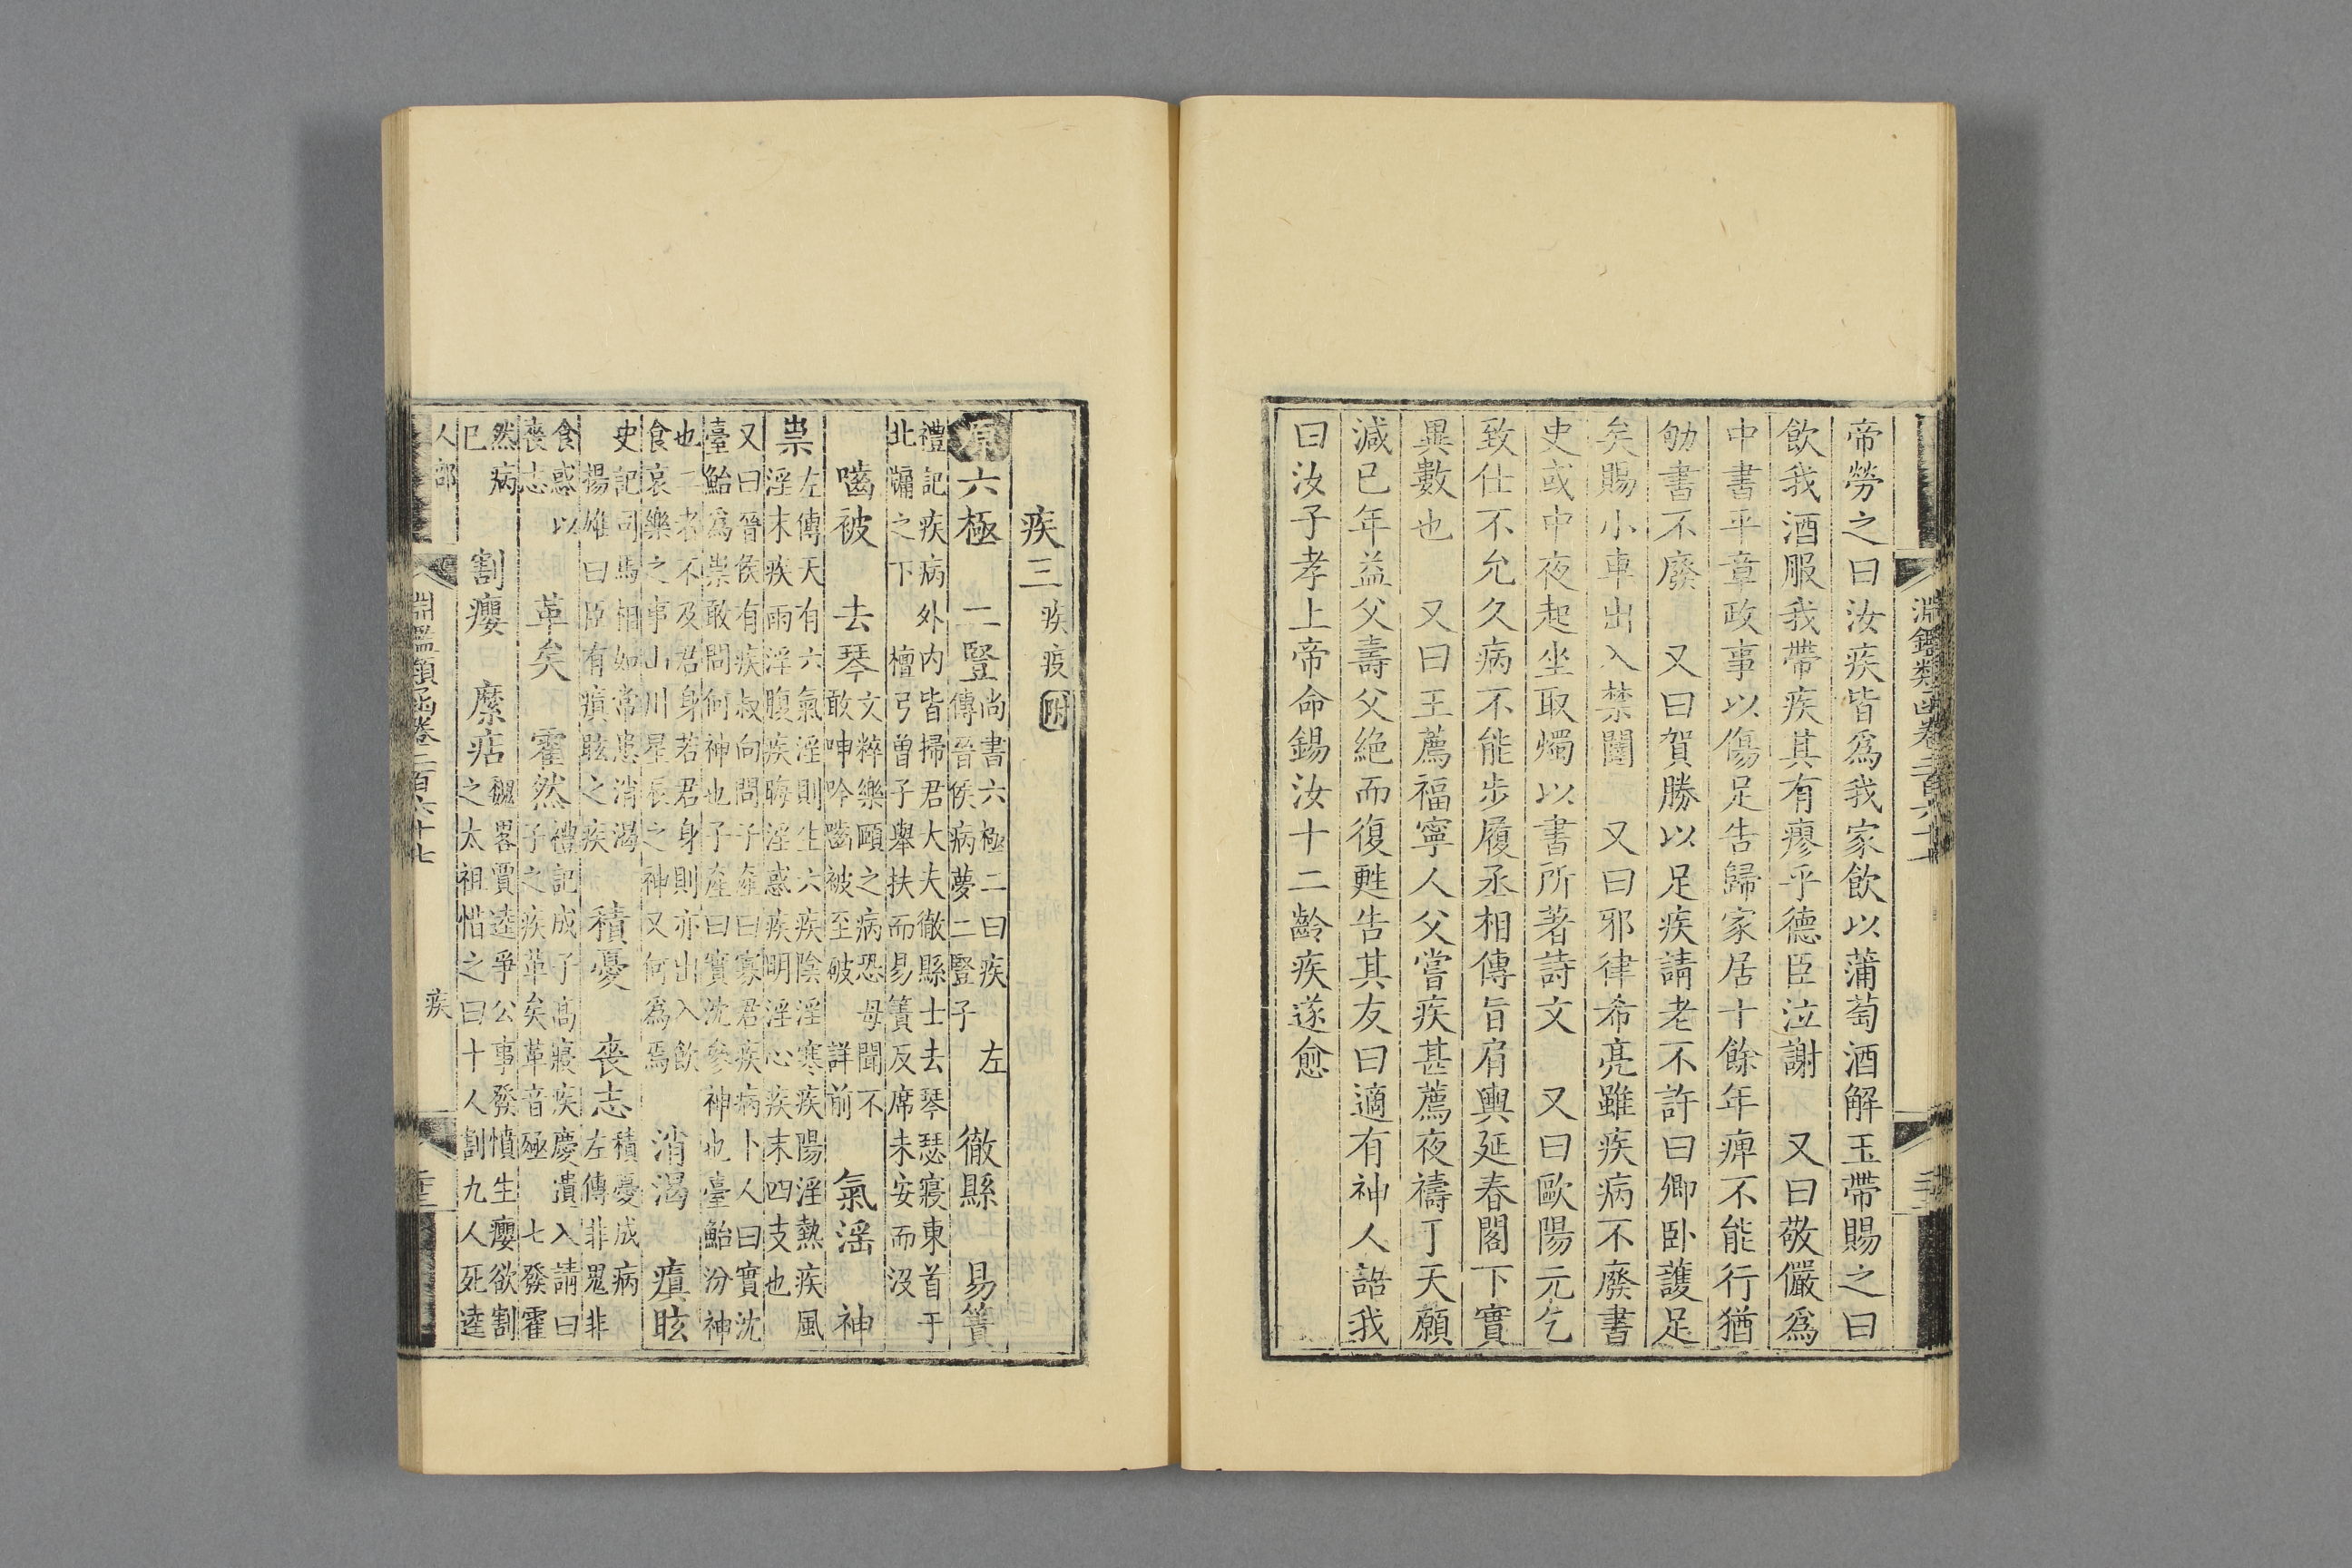 淵鑑類函卷二百六十七
帝勞之曰汝疾皆爲我家飲以蒲萄酒解玉帶賜之曰
飲我酒服我帶疾其有瘳乎德臣泣謝　又曰敬儼爲
中書平章政事以傷足告歸家居十餘年痺不能行猶
劬書不廢　又曰賀勝以足疾請老不許曰卿卧護足
矣賜小車出入禁闥　又曰邪律希亮雖疾病不廢書
史或中夜起坐取燭以書所著詩文　又曰歐陽元乞
致仕不允久病不能步履丞相傳旨肩輿延春閣下實
異數也　又曰王薦福寧人父嘗疾甚薦夜禱丁天願
減己年益父壽父絶而復甦告其友曰適有神人詔我
曰汝子孝上帝命錫汝十二齡疾遂愈
疾三　疾疫附
原六極　二豎
尚書六極二曰疾　左
傳晉侯病夢二豎子
徹縣　易簀
禮記疾病外内皆掃君大夫徹縣士去琴瑟寢東首于
北牖之下　檀弓曾子舉扶而易簀反席未安而沒
嚙被　去琴
文粹樂頤之病恐母聞不
敢呻吟嚙被至破　詳前
氣淫　神
祟
左傳天有六氣淫則生六疾陰淫寒疾陽淫熱疾風
淫末疾雨淫腹疾晦淫惑疾明淫心疾末四支也
又曰晉侯有疾叔向問子產曰寡君疾病卜人曰實沈
臺鮐爲祟敢問何神也子產曰實沈參神也臺鮐汾神
也二者不及君身若君身則亦出入飲
食哀樂之事山川星辰之神又何爲焉
消渴　瘨眩
史記司馬相如常患消渴
揚雄曰臣有瘨眩之疾
積憂　喪志
積憂成病
左傳非鬼非
食惑以
喪志
革矣　霍然
禮記成子高寢疾慶遺入請曰
子之疾革矣革音殛　七發霍
然病
已
割癭　縻痁
魏畧賈逵爭公事發憤生癭欲割
之太祖惜之曰十人割九人死逵
人部　疾
淵鑑類函卷二百六十七